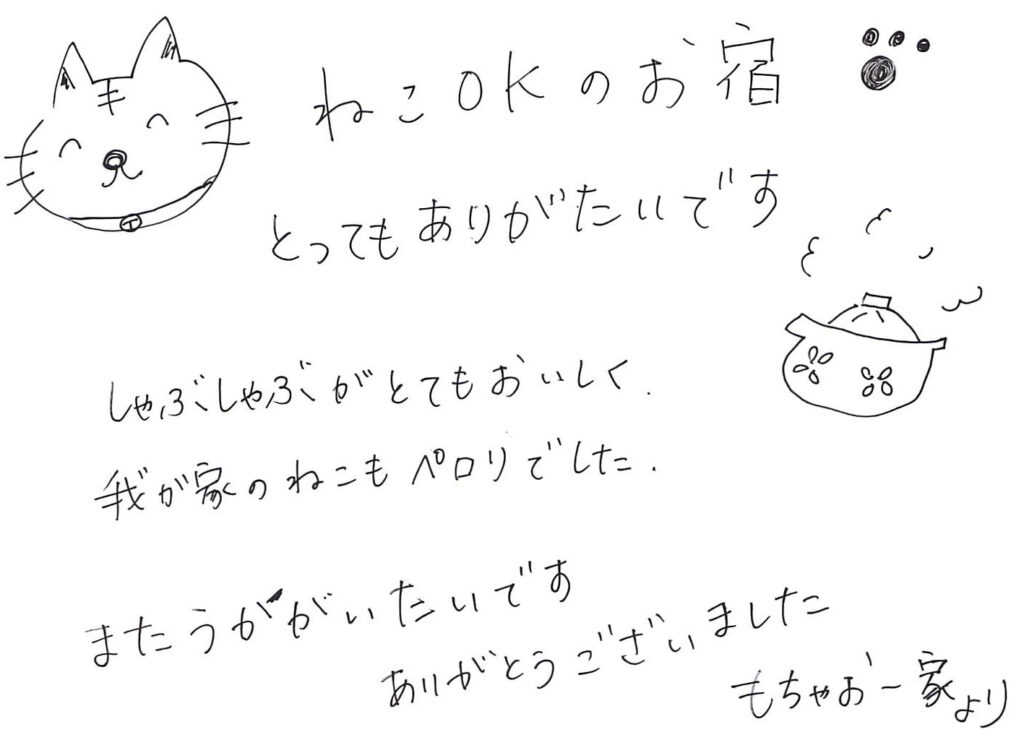 ねこOKのお宿
とってもありがたいです
しゃぶしゃぶがとてもおいしく.
我が家のねこもペロリでした.
またうががいたいです
ありがとうございました
もちゃお一家より